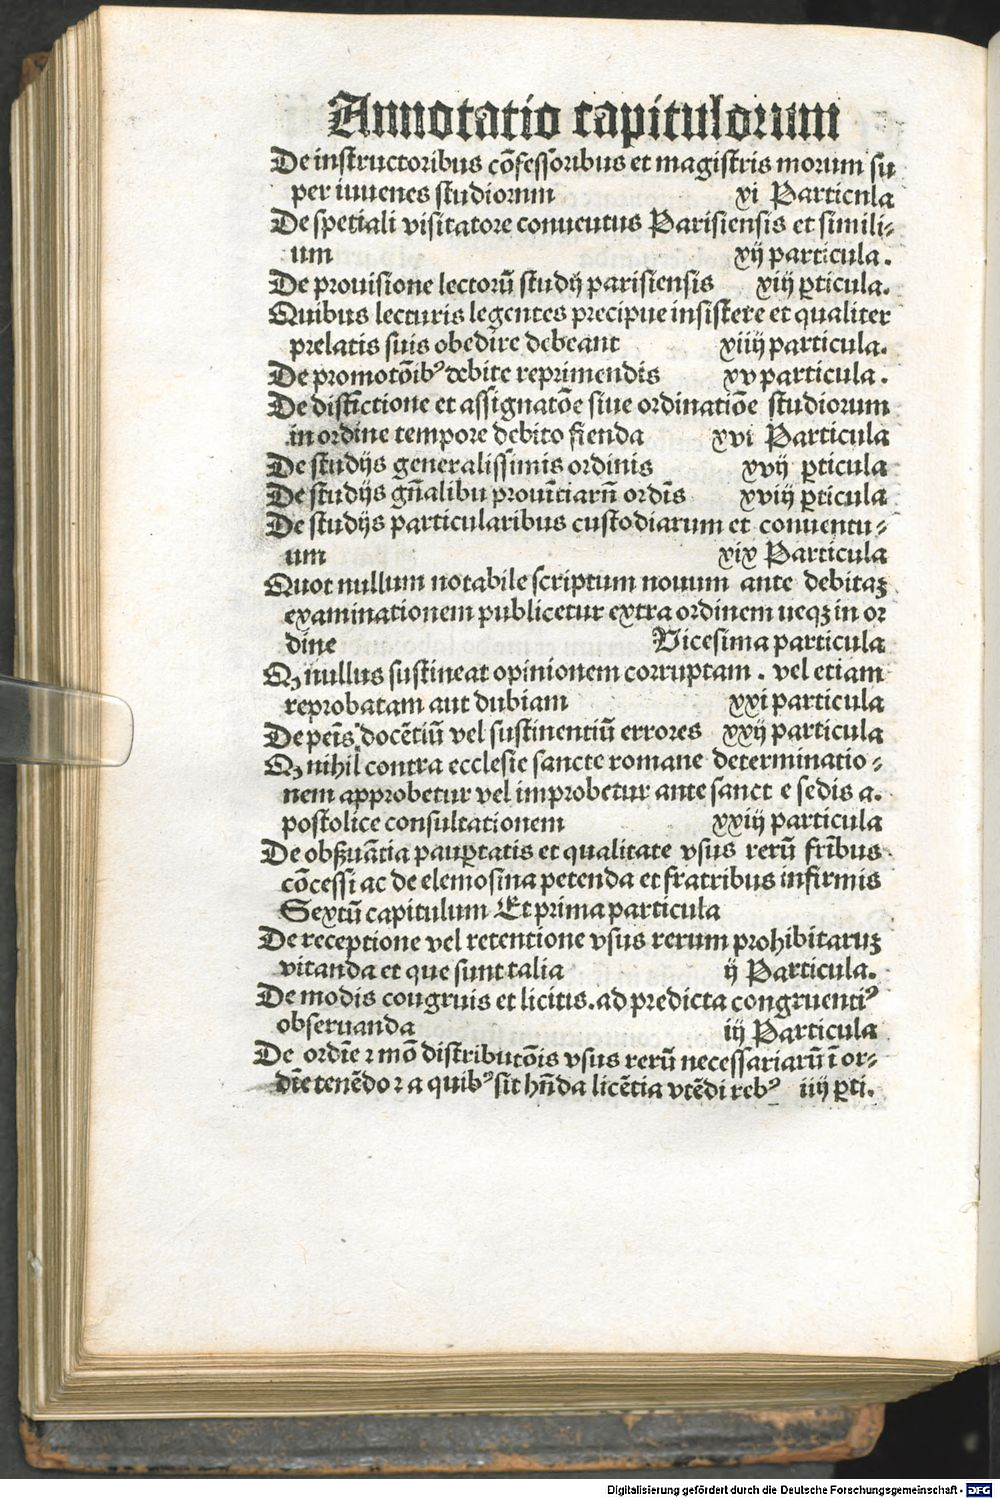 Annotatio capitulorum
De instructoribus cōfessoribus et magistris morum su
per iuuenes studiorum xi Particula
De spetiali visitatore conuentus Parisiensis et simili⸗
um xij particula.
De prouisione lectorū studij parisiensis xiij ꝑticula.
Quibus lecturis legentes precipue insistere et qualiter
prelatis suis obedire debeant xiiij particula.
De promotōibꝰ debite reprimendis xv particula.
De distīctione et assignatōe siue ordinatiōe studiorum
in ordine tempore debito fienda xvi Particula
De studijs generalissimis ordinis xvij ꝑticula
De studijs gn̄alibu prouīciarū ordīs xviij ꝑticula
De studijs particularibus custodiarum et conuentu⸗
um xix Particula
Quot nullum notabile scriptum nouum ante debitaꝫ
examinationem publicetur extra ordinem ueqꝫ in or
dine Vicesima particula
Qꝫ nullus sustineat opinionem corruptam. vel etiam
reprobatam aut dubiam xxi particula
De peīs docētiū vel sustinentiū errores xxij particula
Qꝫ nihil contra ecclesie sancte romane determinatio⸗
nem approbetur vel improbetur ante sanct e sedis a.
postolice consultationem xxiij particula
De obẞuātia pauꝑtatis et qualitate vsus rerū frībus
cōcessi ac de elemosina petenda et fratribus infirmis
Sextū capitulum Et prima particula
De receptione vel retentione vsus rerum prohibitaruꝫ
vitanda et que sunt talia ij Particula.
De modis congruis et licitis. ad predicta congruentiꝰ
obseruanda iij Particula
De ordīe ꝛ mō distributōis vsus rerū necessariarū ī or⸗
dīe tenēdo ꝛ a quibꝰ sit hn̄da licētia vtēdi rebꝰ iiij ꝑti.
Digitalisierung gefördert durch die Deutsche Forschungsgemeinschaft - DFG